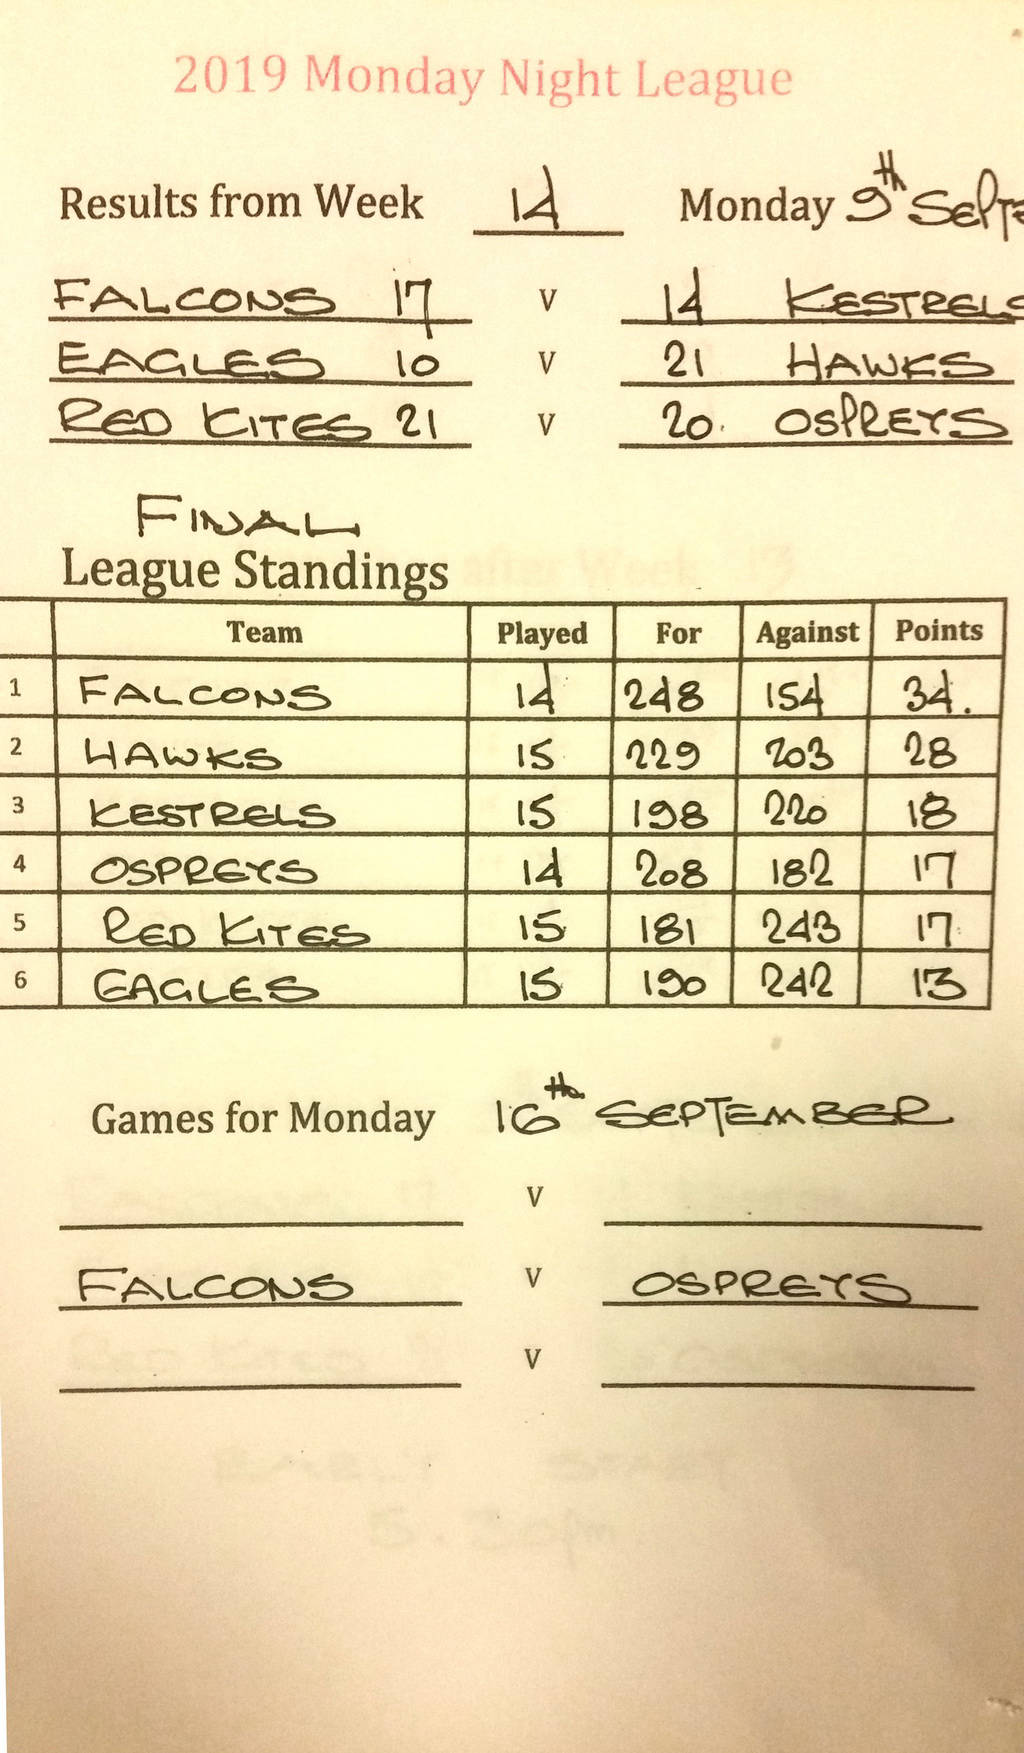 2019 Monday Night League
Results from Week 14 Monday 9th SEPTE
FALCONS 17 v 14 KESTRELS
EAGLES 10 v 21 HAWKS
RED KITES 21 v 20. OSPREYS
FINAL
League Standings after Week 13
Team Played For Against Points
1 FALCONS 14 248 154 34.
2 HAWKS 15 229 203 28
3 KESTRELS 15 198 220 18
4 OSPREYS 14 208 182 17
5 RED KITES 15 181 243 17
6 EAGLES 15 190 242 13
Games for Monday 16th SEPTEMBER
v
FALCONS v OSPREYS
v
EARLY START
5.30pm